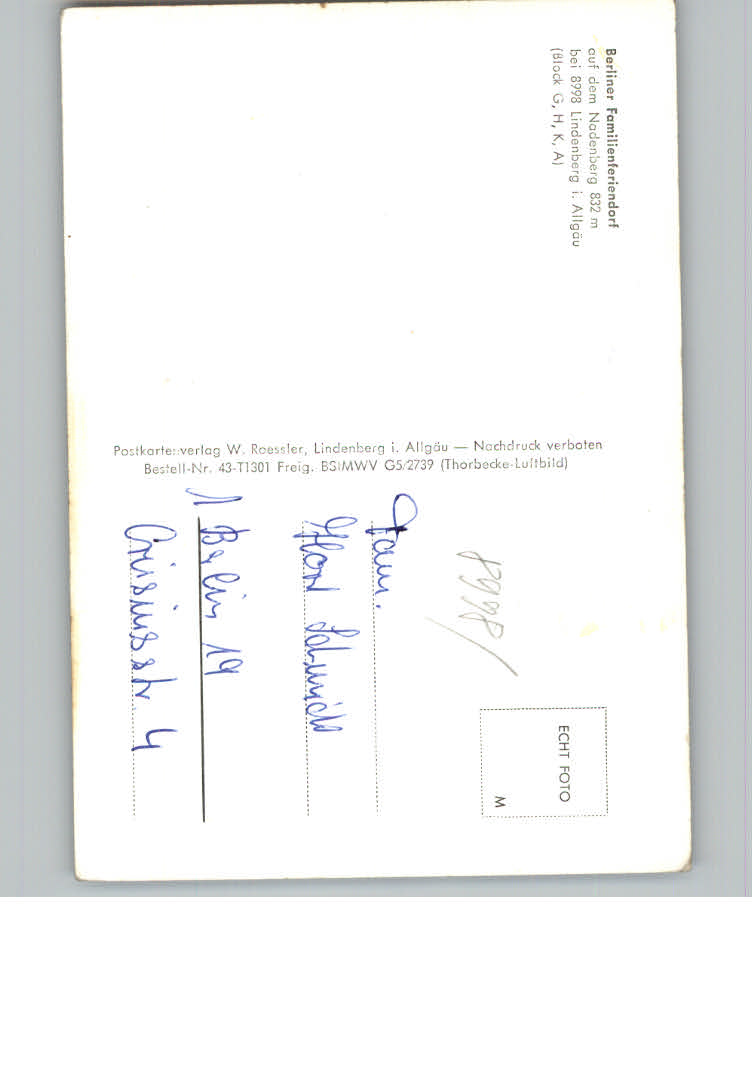 Berliner Familienferiendorf
auf dem Nadenberg 832 m
bei 8998 Lindenberg i. Allgäu
(Block G, H, K, A)
Postkartenverlag W. Roessler, Lindenberg i. Allgäu — Nachdruck verboten
Bestell-Nr. 43-T1301 Freig. BSIMWV G5/2739 (Thorbecke-Luftbild)
ECHT FOTO
M
8998/
Fam.
Horst Schmidt
1 Berlin 19
4